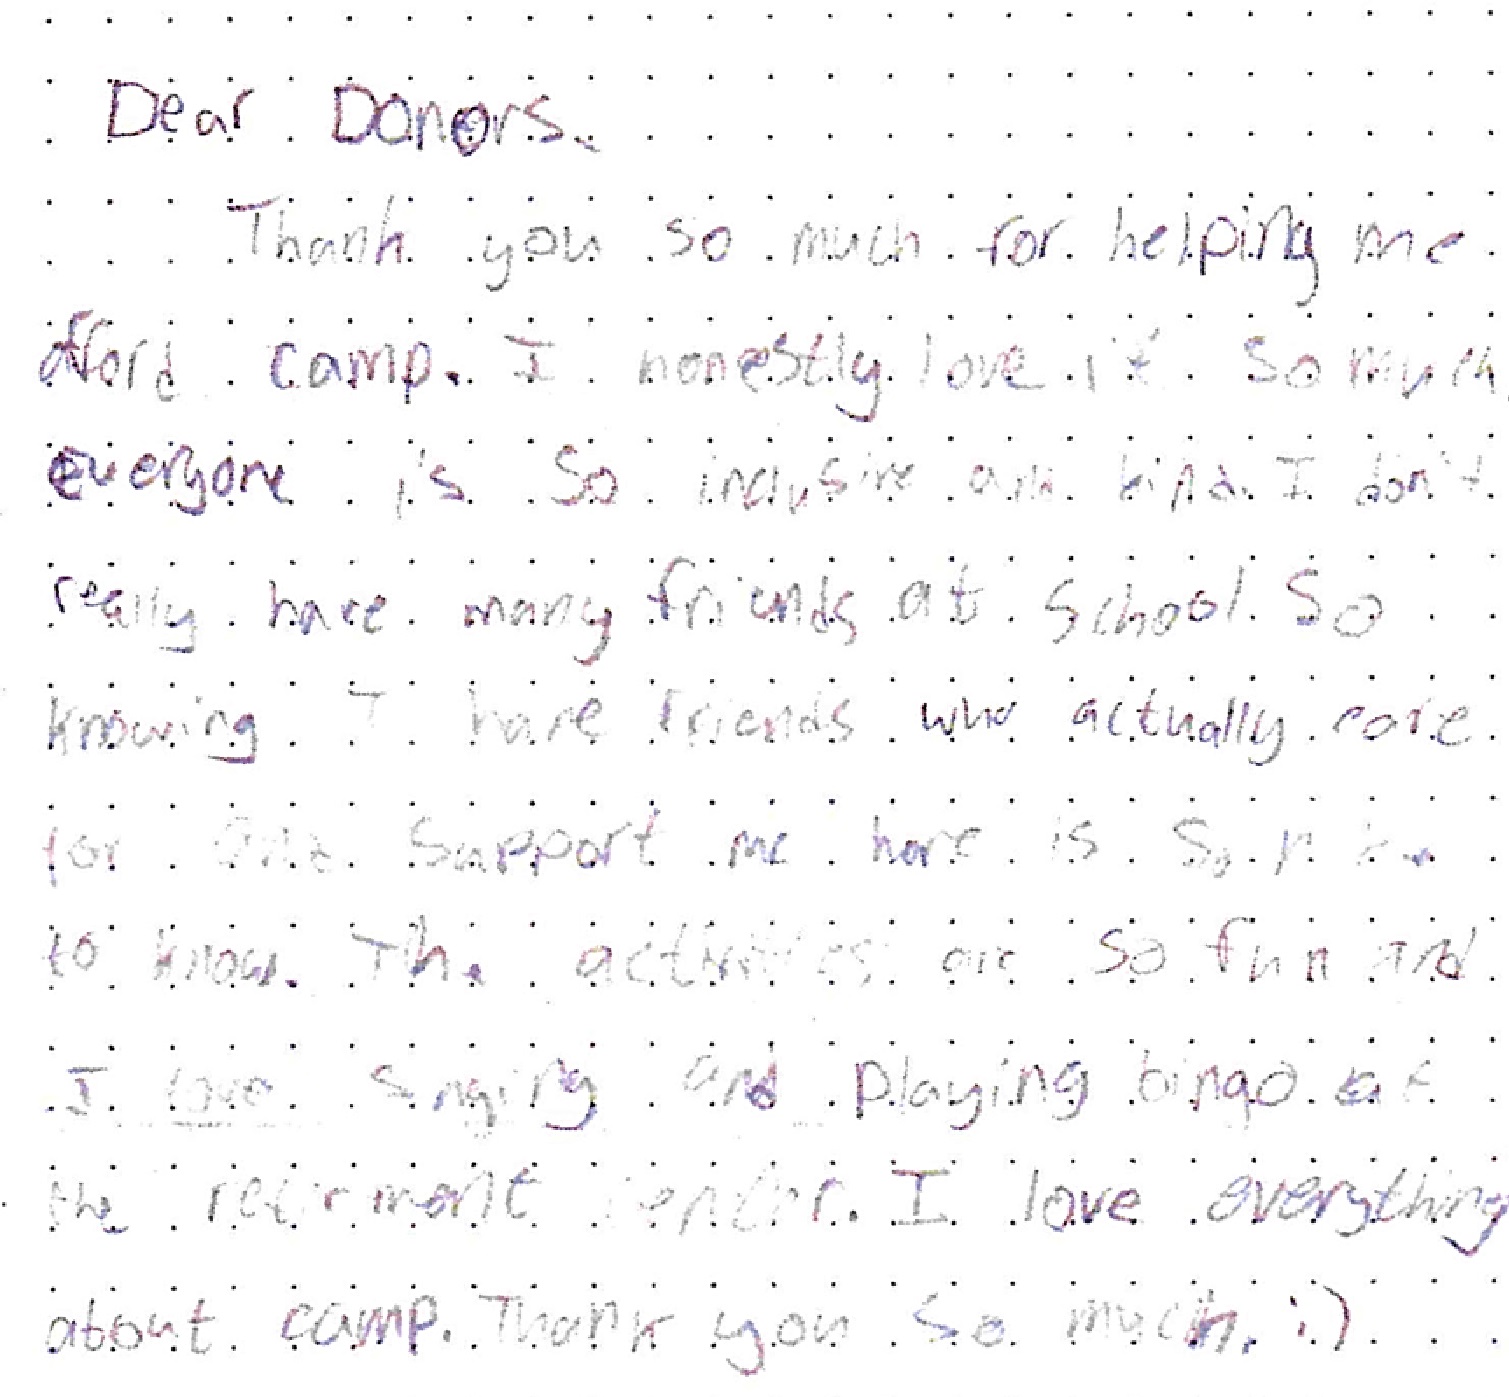 Dear Donors,
Thank you so much for helping me
afford camp. I honestly love it so much,
everyone is so inclusive and kind. I don't
really have many friends at school. So
knowing I have friends who actually care
for and support me here is so
to know. The activities are so fun and
I love singing and playing bingo at
the retirment center. I love everything
about camp. Thank you so much. :)